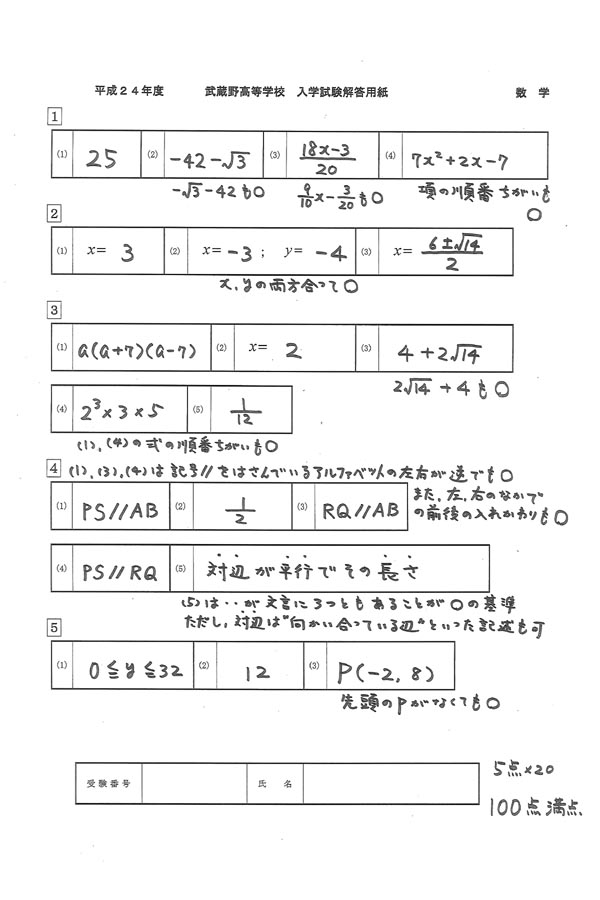 平成24年度 武蔵野高等学校 入学試験解答用紙 数 学
1
(1) 25 (2) -42-√3 (3) 18x-3/20 (4) 7x²+2x-7
-√3-42も○ 9/10x-3/20も○ 項の順番ちがいも○
2
(1) x= 3 (2) x= -3 ; y= -4 (3) x= 6±√14/2
x, yの両方合って○
3
(1) a(a+7)(a-7) (2) x= 2 (3) 4+2√14
2√14+4も○
(4) 2³×3×5 (5) 1/12
(1), (4)の式の順番ちがいも○
4 (1), (3), (4)は記号//をはさんでいるアルファベットの左右が逆でも○
(1) PS//AB (2) 1/2 (3) RQ//AB
また, 左, 右のなかで
の前後の入れかわりも○
(4) PS//RQ (5) 対辺が平行でその長さ
(5)は・・が文言に3つともあることが○の基準
ただし, 対辺は"向かい合っている辺"といった記述も可
5
(1) 0≦y≦32 (2) 12 (3) P(-2, 8)
先頭のPがなくても○
受験番号 氏 名
5点×20
100点満点